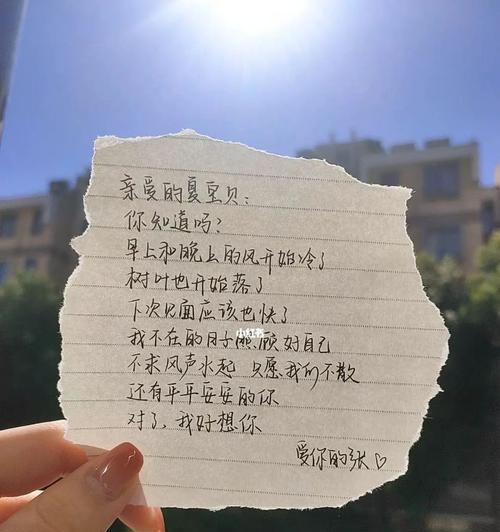 亲爱的夏宝贝:
你知道吗?
早上和晚上的风开始冷了
树叶也开始落了
下次见面应该也快了
小红书
我不在的日子照顾好自己
不求风声水起 只愿我们不散
还有平平安安的你
对了、我好想你
爱你的张♡